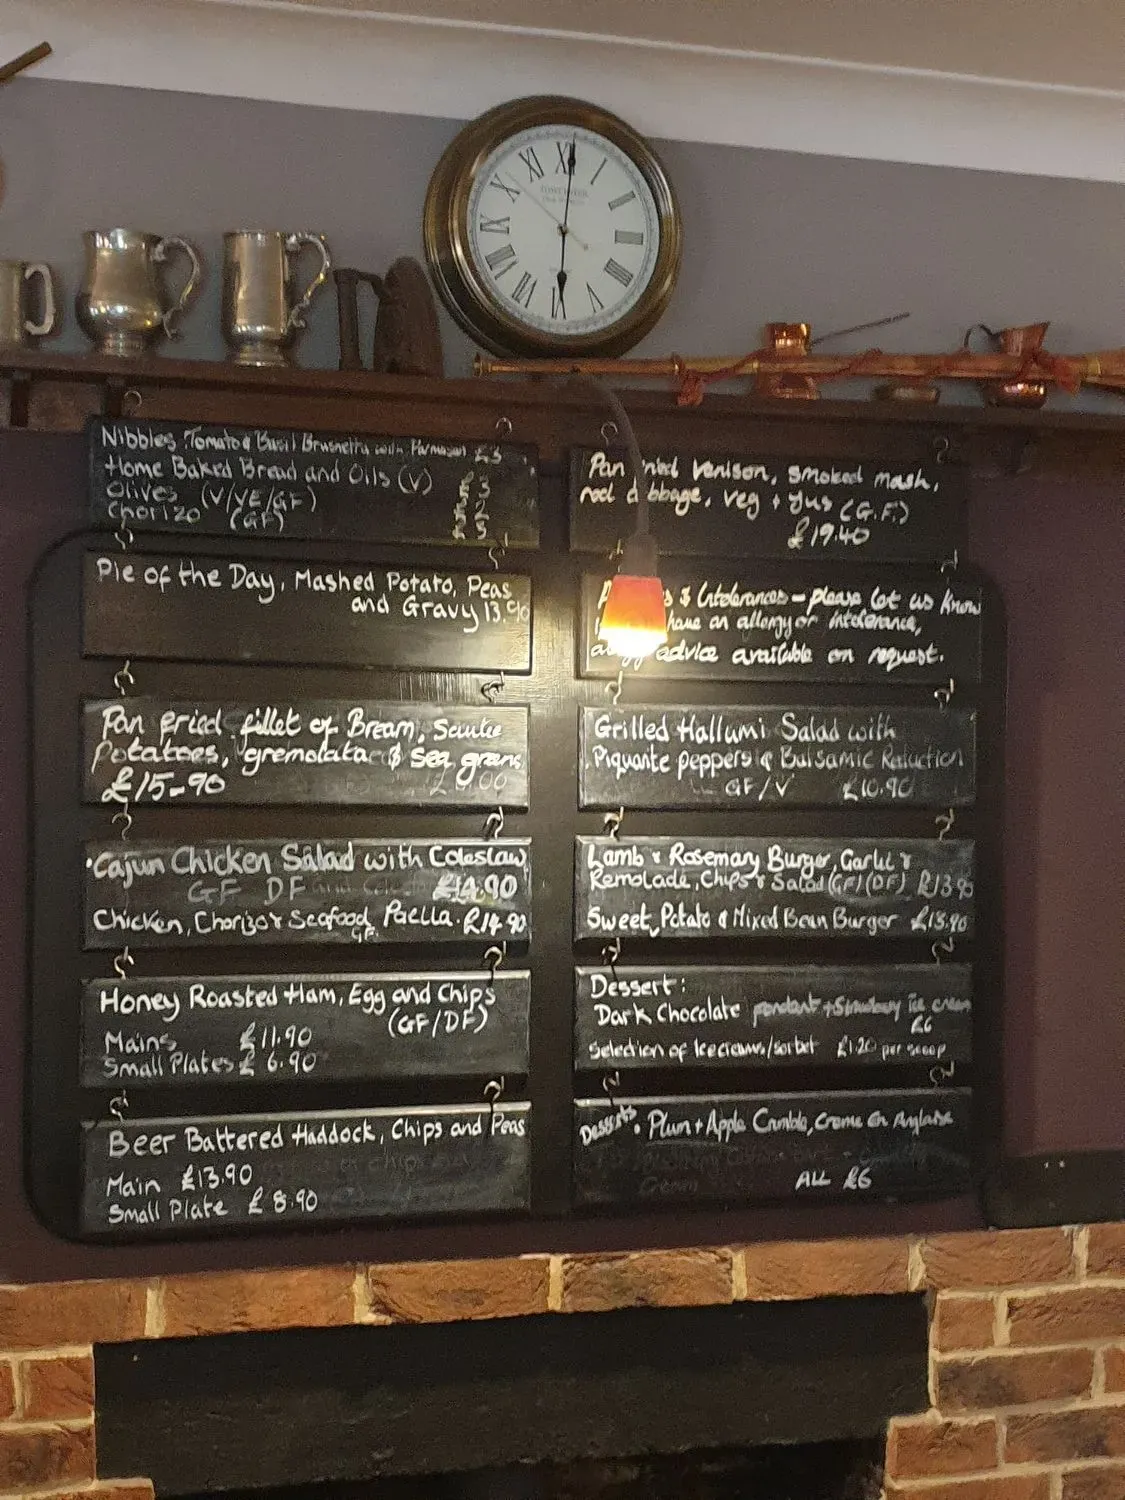 XII
I
II
III
IIII
V
VI
VII
VIII
IX
X
XI
Nibbles Tomato & Basil Brusnetta with Parmasan £5
Home Baked Bread and Oils (V) £3
Olives (V/VE/GF) £2
Chorizo (GF) £5
Pie of the Day, Mashed Potato, Peas
and Gravy 13.90
Pan fried fillet of Bream, Saute
Potatoes, gremolata & Sea greens
£15-90
Cajun Chicken Salad with Coleslaw
GF DF £14.90
Chicken, Chorizo & Seafood Paella. £14.90
GF.
Honey Roasted Ham, Egg and Chips
(GF/DF)
Mains £11.90
Small Plates £6.90
Beer Battered Haddock, Chips and Peas
Main £13.90
Small Plate £8.90
Pan fried venison, smoked mash,
red cabbage, veg + Jus (G.F.)
£19.40
& Intolerances - please let us know
have an allergy or intolerance,
advice available on request.
Grilled Hallumi Salad with
Piquante peppers & Balsamic Reduction
GF/V £10.90
Lamb & Rosemary Burger, Garlic &
Remolade, Chips & Salad (GF) (DF) £13.90
Sweet Potato & Mixed Bean Burger £13.90
Dessert:
Dark Chocolate fondant + Strawberry Ice cream
£6
Selection of Icecreams/sorbet £1.20 per scoop
Desserts • Plum + Apple Crumble, Creme en Anglaise
ALL £6